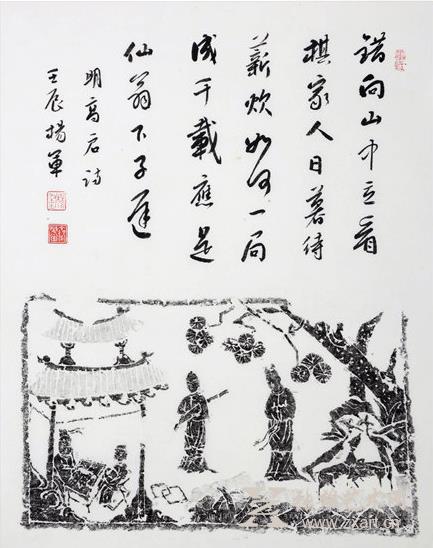 錯向山中立看
棋家人日暮待
薪炊如何一局
成千載應是
仙翁下子遲
明高启詩
壬辰揚軍
www.zxart.cn